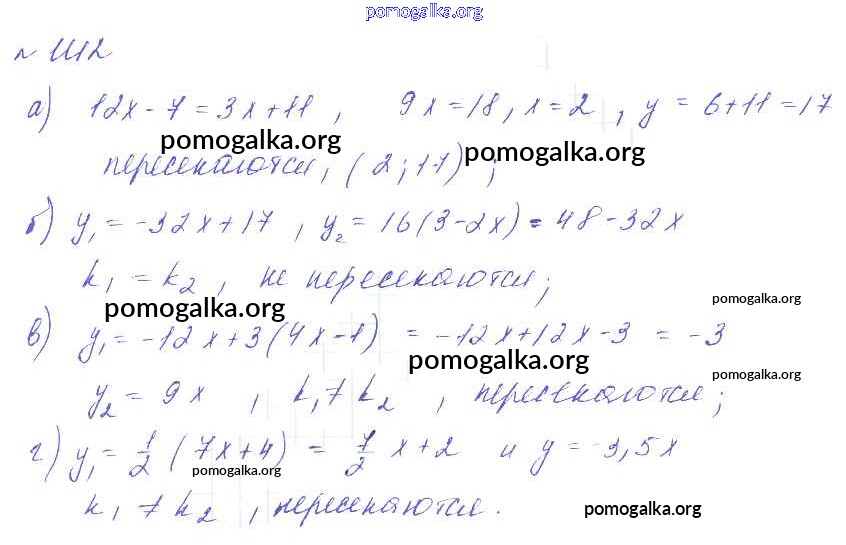 pomogalka.org
№ 1112
а) 12x - 7 = 3x + 11 , 9x = 18 , x = 2 , y = 6 + 11 = 17
pomogalka.org
пересекаются, (2 ; 17) ; pomogalka.org
б) y₁ = -32x + 17 , y₂ = 16(3 - 2x) = 48 - 32x
k₁ = k₂ , не пересекаются;
pomogalka.org pomogalka.org
в) y₁ = -12x + 3(4x - 1) = -12x + 12x - 3 = -3
pomogalka.org pomogalka.org
y₂ = 9x , k₁ ≠ k₂ , пересекаются;
г) y₁ = 1/2 (7x + 4) = 7/2 x + 2 и y = -3,5x
pomogalka.org
k₁ ≠ k₂ , пересекаются. pomogalka.org